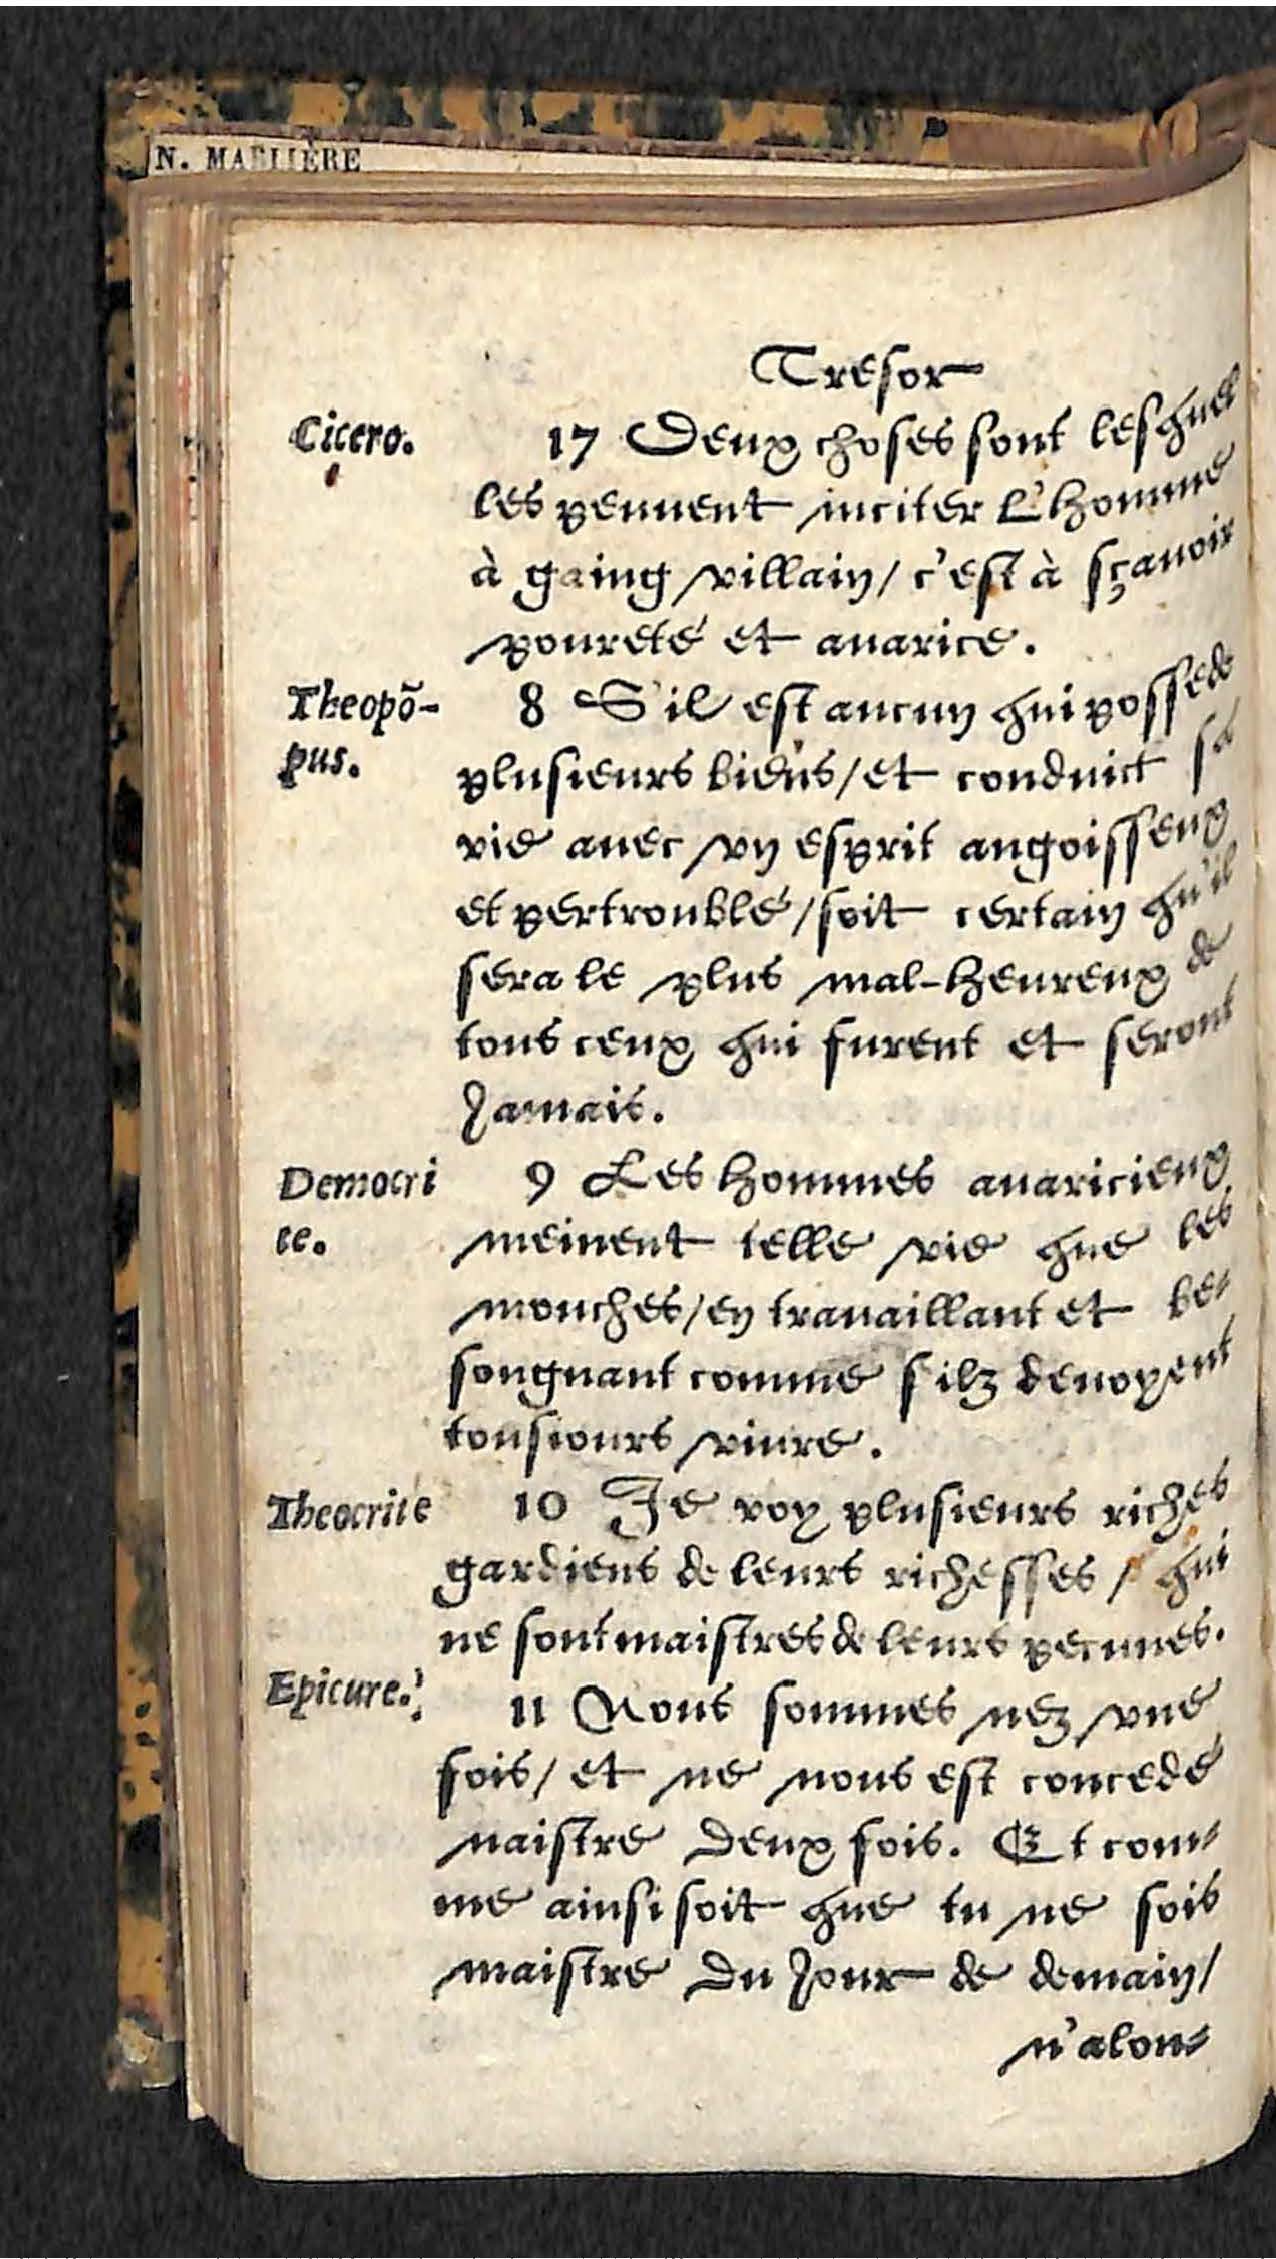 N. MARLIÈRE
Tresor
Cicero.
17 Deux choses sont lesquel
les peuuent inciter l'homme
à gaing villain / c'est à sçauoir
poureté et auarice.
Theopõ-
pus.
8 S'il est aucun qui possede
plusieurs biens / et conduict sa
vie auec vn esprit angoisseux
et pertroublé / soit certain qu'il
sera le plus mal-heureux de
tous ceux qui furent et seront
Jamais.
Democri
te.
9 Les hommes auaricieux
meinent telle vie que les
mouches / en trauaillant et be-
songnant comme s'ilz deuoyent
tousiours viure.
Theocrite
10 Je voy plusieurs riches
gardiens de leurs richesses / qui
ne sont maistres de leurs pecunes.
Epicure.
11 Nous sommes nez vne
fois / et ne nous est concedé
naistre deux fois. Et com-
me ainsi soit que tu ne sois
maistre du Jour de demain /
n'alon-